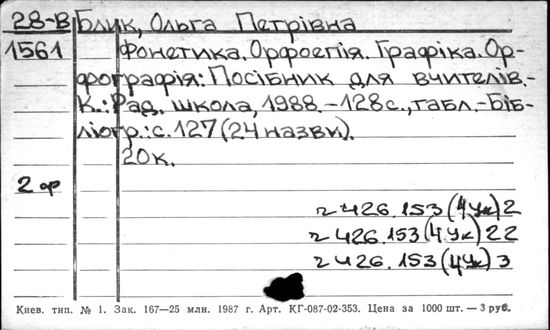 28-В Блик, Ольга Петрівна
1561 Фонетика. Орфоепія. Графіка. Ор-
фографія: Посібник для вчителів.-
К.: Рад. школа, 1988.-128с., табл.-Біб-
ліогр.: с. 127 (24 назви).
20к.
2 ор
ч 426.153(4Ук)2
ч 426.153(4Ук)22
ч 426.153(4Ук)3
Киев. тип. № 1. Зак. 167—25 млн. 1987 г. Арт. КГ-087-02-353. Цена за 1000 шт. — 3 руб.